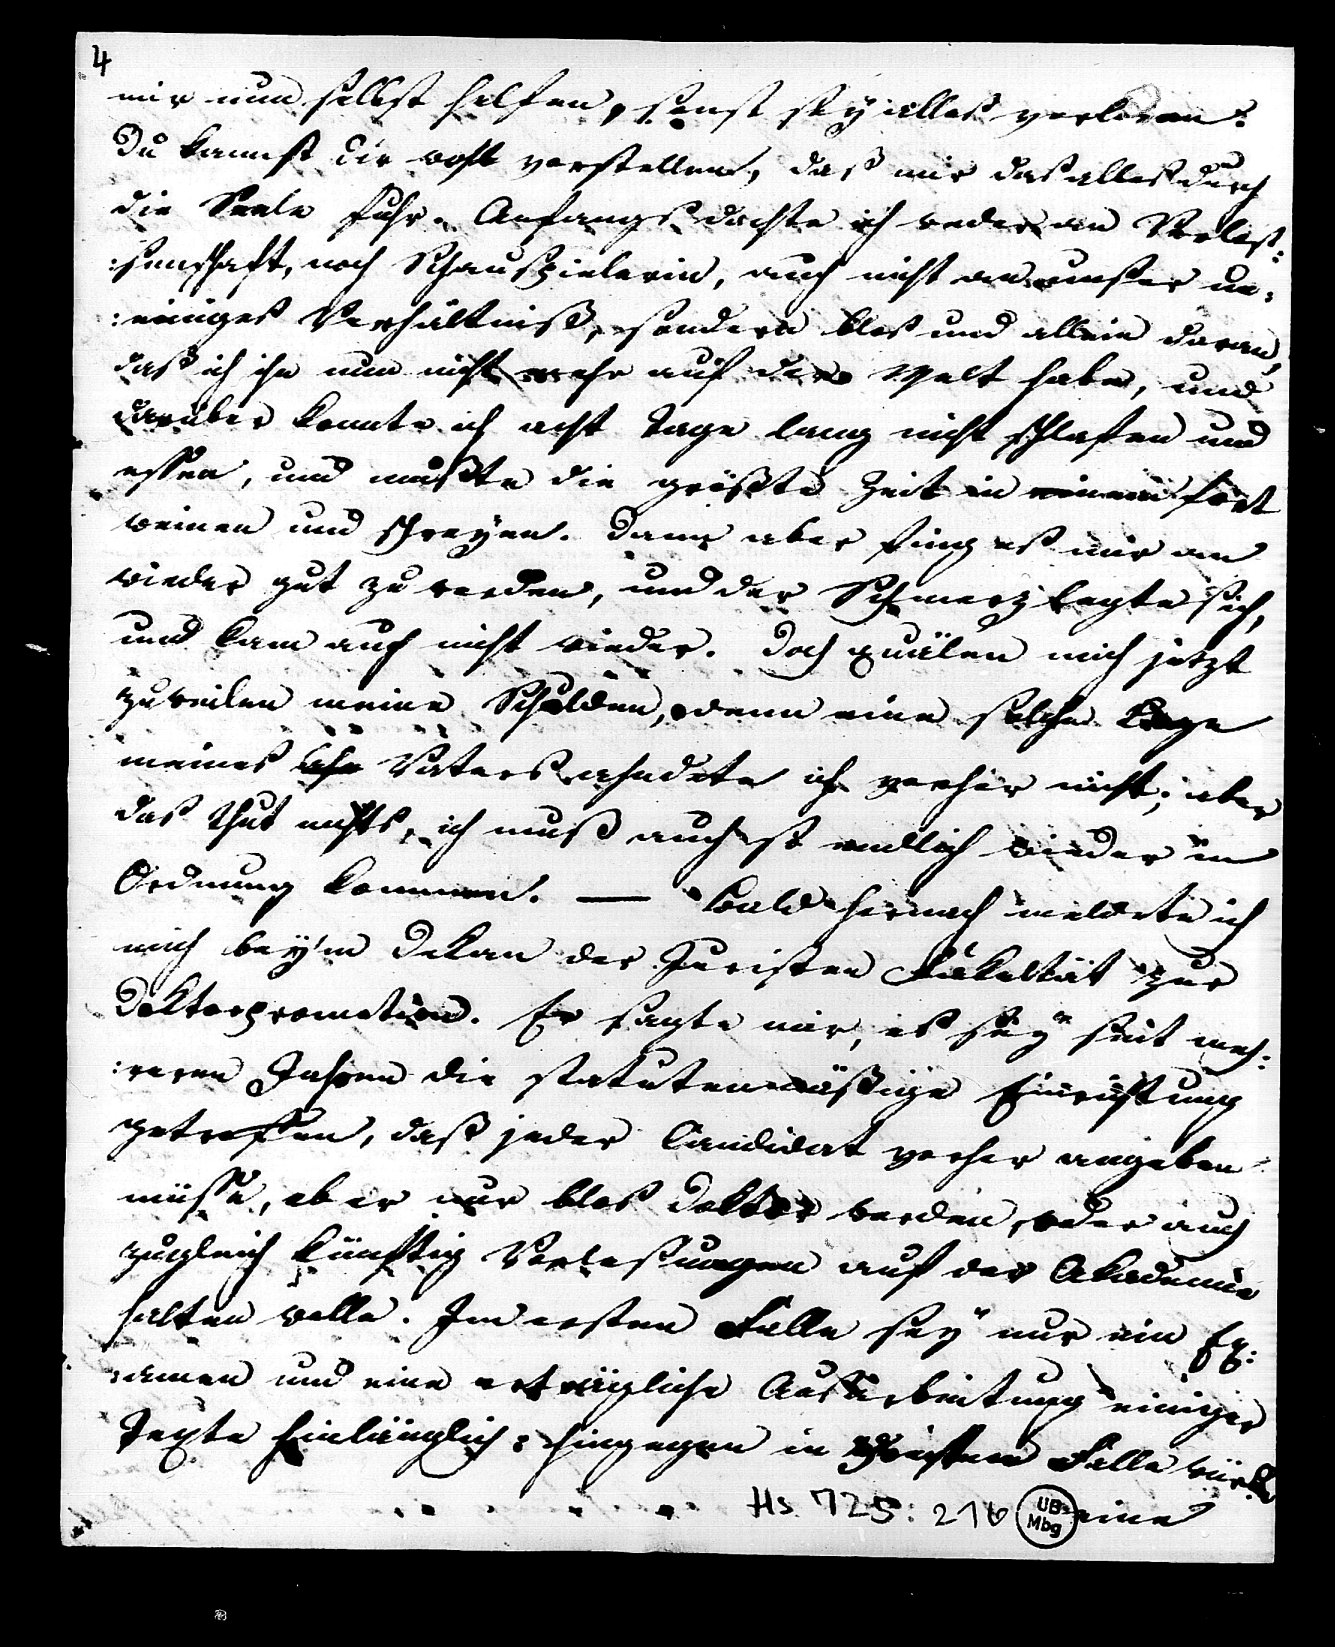 4
mir nun selbst helfen, sonst sey alles verloren.
Du kannst dir wohl vorstellen, daß mir das alles durch
die Seele fuhr. Anfangs dachte ich weder an Verlas¬
:senschaft, noch Schauspielerin, auch nicht an unser un¬
:einiges Verhältniß, sondern blos und allein daran,
daß ich ihn nun nicht mehr auf der Welt habe, und
darüber konnte ich acht Tage lang nicht schlafen und
essen, und mußte die größte Zeit in einem fort
weinen und schreyen. Dann aber fing es mir an
wieder gut zu werden, und der Schmerz legte sich,
und kam auch nicht wieder. Doch quälen mich jetzt
zuweilen meine Schulden, denn eine solche Lage
meines Vaters ahndete ich vorher nicht; aber
das thut nichts, ich muß auch so endlich wieder in
Ordnung kommen. — Bald hernach meldete ich
mich bey'm Dekan der Juristen Fakultät zur
Doktorpromotion. Er sagte mir, es sey seit meh:
:reren Jahren die statutenmäßige Einrichtung
getroffen, daß jeder Candidat vorher angeben
müsse, ob er nur blos Doktor werden, oder auch
zugleich künftig Vorlesungen auf der Akademie
halten wolle. Im ersten Falle sey nur ein Ex:
:amen und eine erträgliche Ausarbeitung einiger
Texte hinlänglich; hingegen in Falle würde
Hs. 725: 216 UB Mbg eine